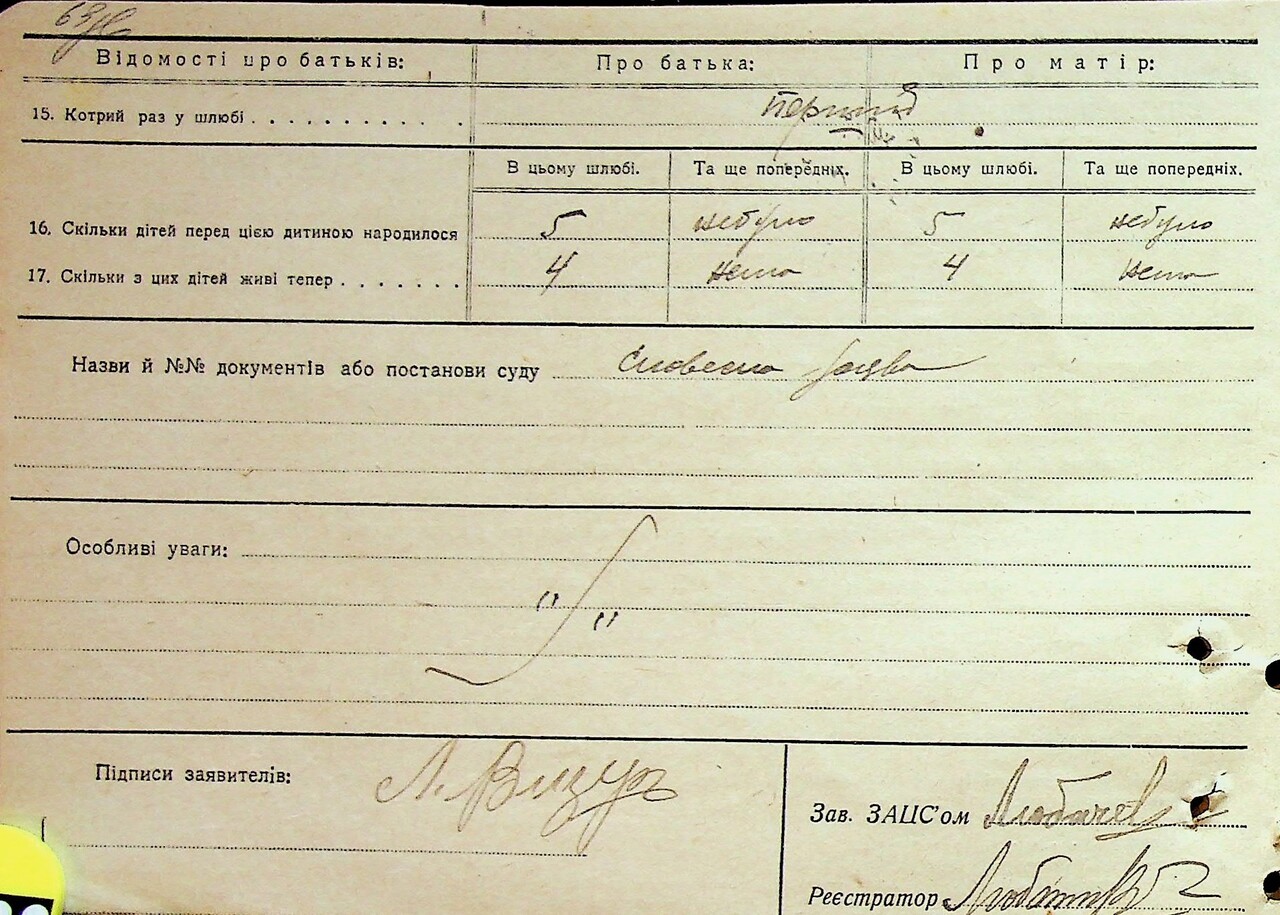 63
Відомості про батьків: Про батька: Про матір:
15. Котрий раз у шлюбі . . . . . . . . . . . Перший
В цьому шлюбі. Та ще попередніх. В цьому шлюбі. Та ще попередніх.
16. Скільки дітей перед цією дитиною народилося 5 небуло 5 небуло
17. Скільки з цих дітей живі тепер . . . . . . . 4 нема 4 нема
Назви й №№ документів або постанови суду Словесна заява
Особливі уваги:
" "
Підписи заявителів:
Зав. ЗАЦС'ом
Реєстратор